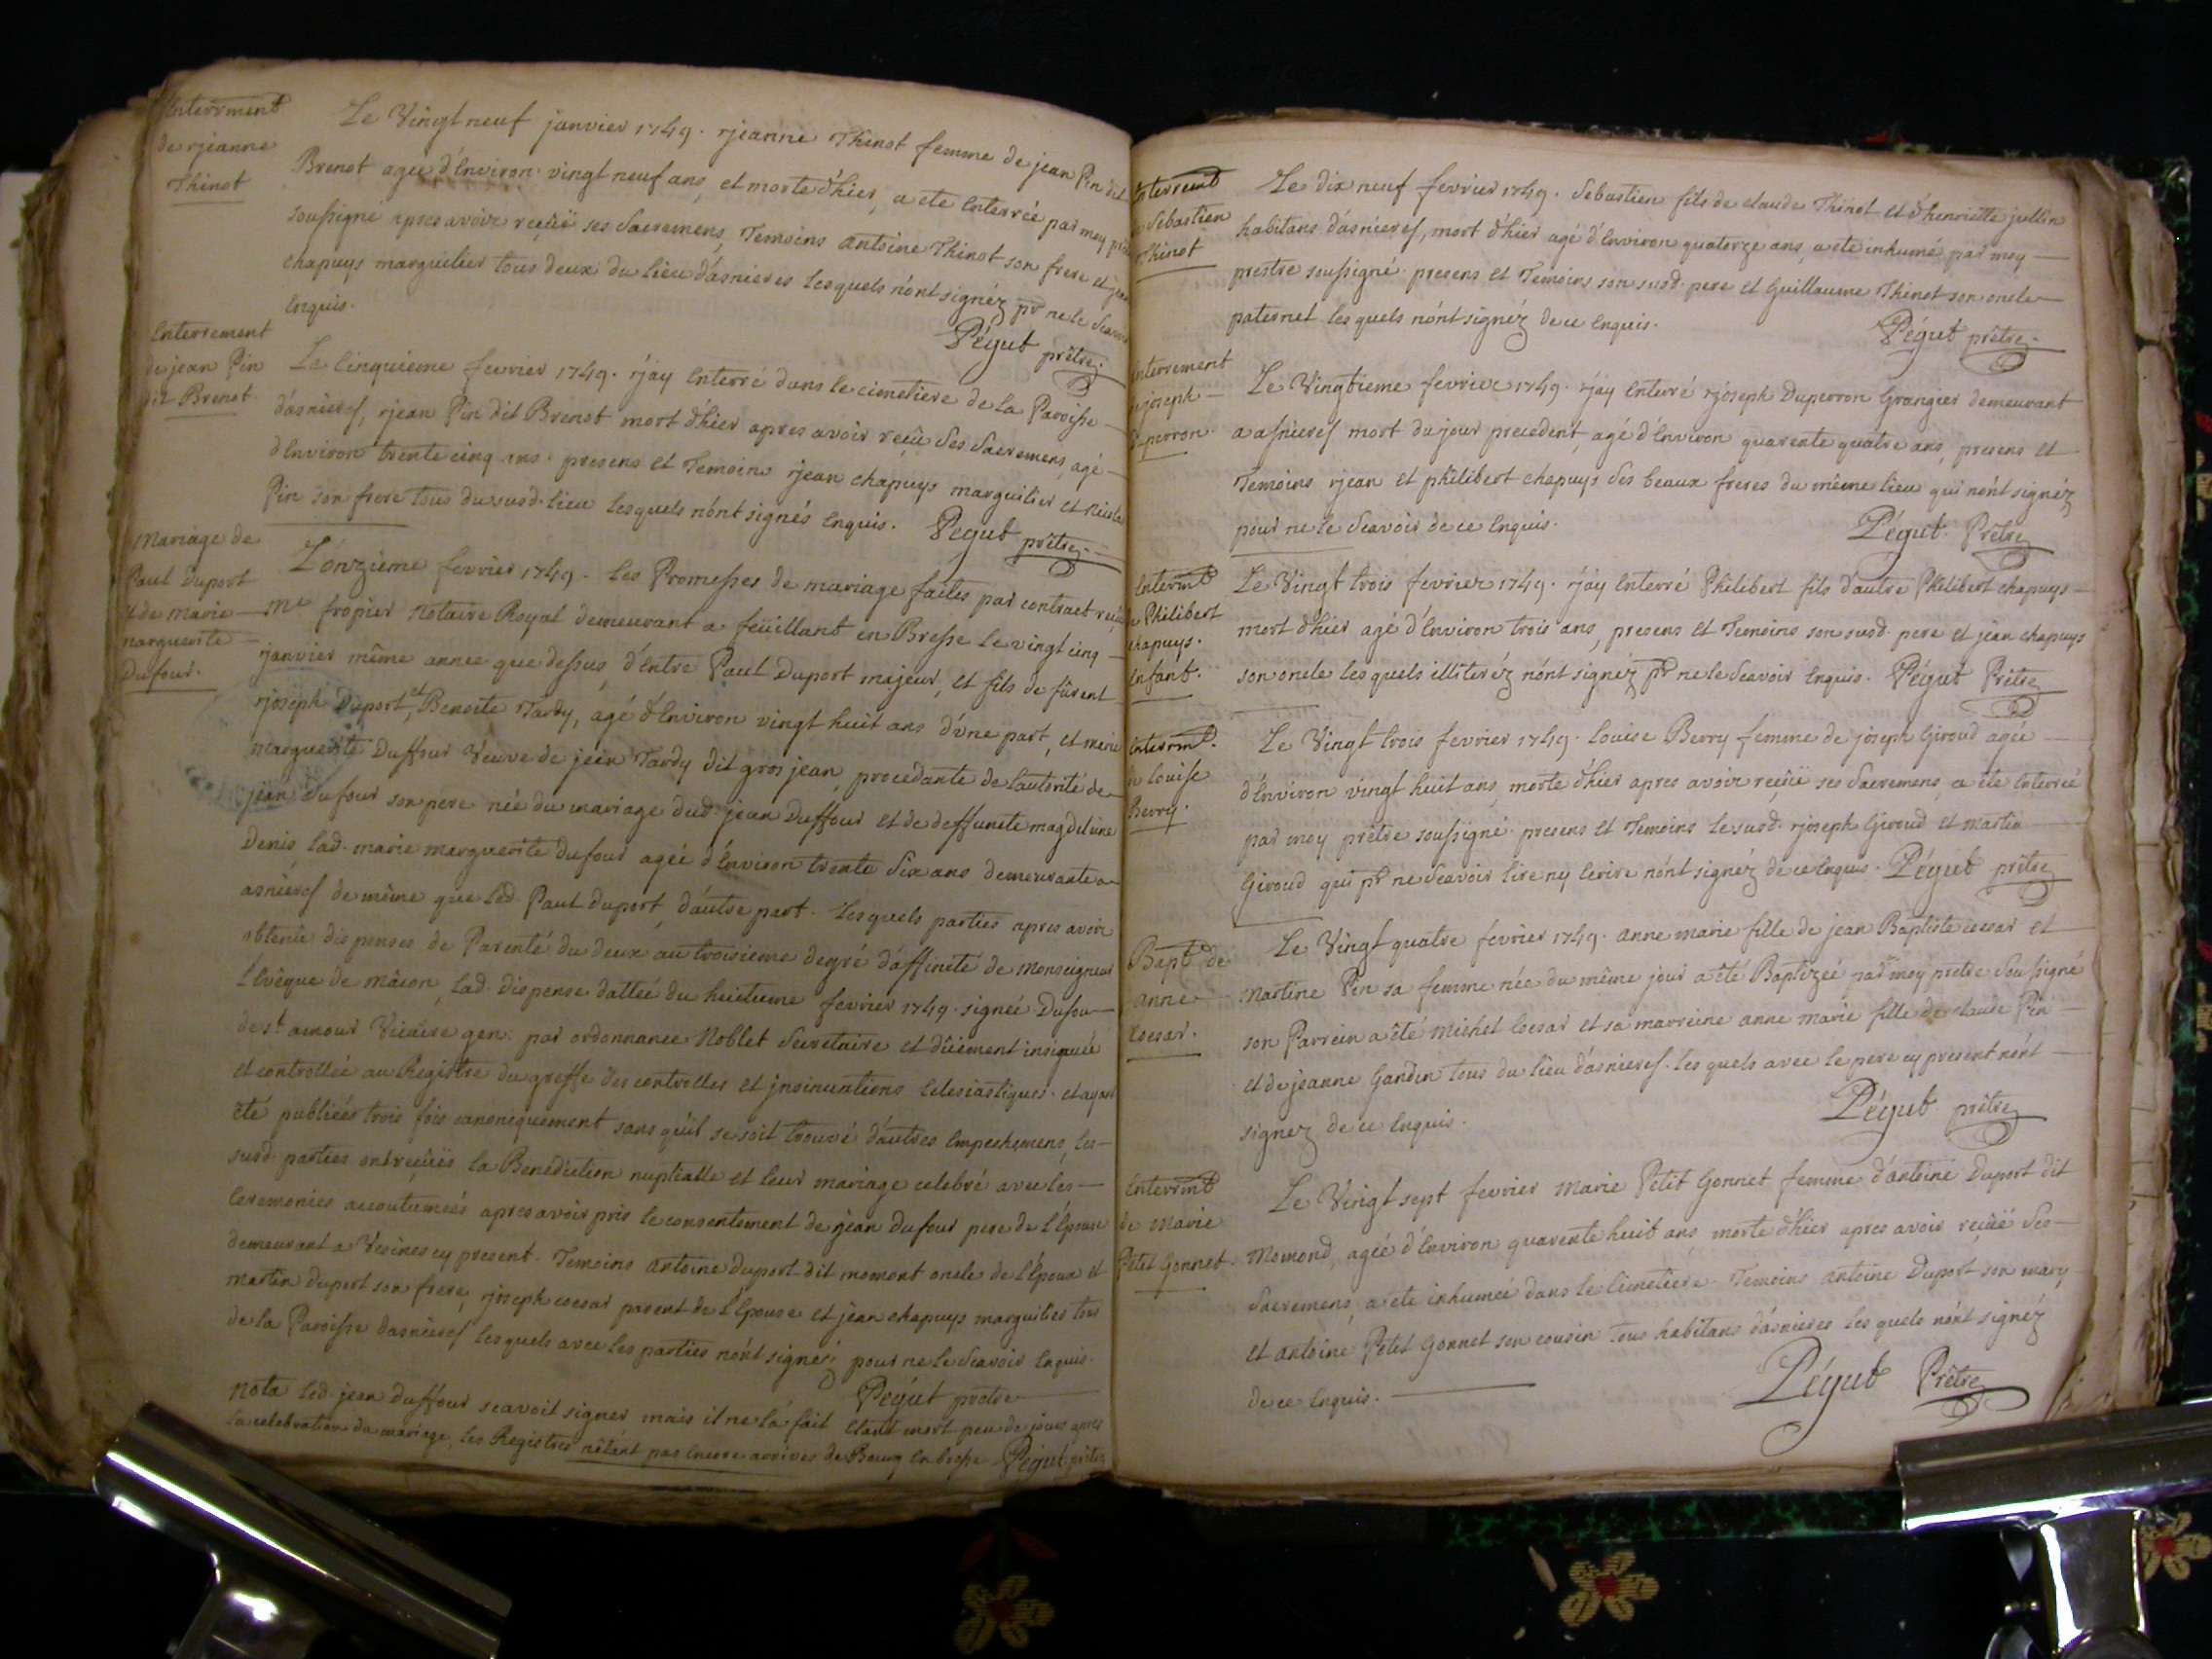 Enterrment
de rjeanne
Thinot
Le Vingt neuf janvier 1749. rjeanne Thinot femme de jean Pin dit
Brenot agée d'Environ vingt neuf ans, et morte d'hier, a ete Enterrée par moy
soussigné apres avoir reçüë ses Sacremens, Temoins Antoine Thinot son frere et jean
chapuys marguilier tous deux du lieu d'asnieres lesquels n'ont signéz pr ne le Scavoir
Enquis.
Pégut prêtre.
Enterrement
de jean Pin
dit Brenot
Le Cinquieme fevrier 1749. rj'ay Enterré dans le cimetiere de la Paroisse
d'asnieres, rjean Pin dit Brenot mort d'hier apres avoir reçû Ses Sacremens, agé
d'Environ trente cinq ans. presens et Temoins rjean chapuys marguilier et
Pin son frere tous du susd. lieu lesquels n'ont signés Enquis. Pegut prêtre.
Mariage de
Paul Duport
et de Marie
marguerite
Dufour.
L'onzieme fevrier 1749. les Promesses de mariage faites par contract reçû
Me fropier Notaire Royal demeurant a feüillant en Bresse le vingt cinq
rjanvier même annee que dessus, d'entre Paul Duport majeur, et fils de fûrent
rjoseph Duport, et Benoite Tardy, agé d'Environ vingt huit ans d'une part, et marie
marguerite Duffour Veuve de jean Tardy dit gros jean, procedante de l'autorité de
jean Dufour son pere née du mariage dud. jean Duffour et de deffunte magdeleine
Denis lad. marie marguerite dufour agée d'Environ trente Six ans demeurante a
asnieres de même que led. Paul Duport, d'autre part. Lesquels parties apres avoir
obtenüe dispenses de Parenté du deux au troisieme degré d'affinité de Monseigneur
l'Evêque de mâcon, lad. dispense dattée du huitieme fevrier 1749. signée Dufour
de st amour Vicaire gen: par ordonnance Noblet Secretaire et dûement insinuée
et controllée au Registre du greffe des controlles et insinuations Eclesiastiques. et ayant
été publiées trois fois canoniquement sans qu'il se soit trouvé d'autres Empechemens, les
susd. parties ont reçûës la Benediction nuptialle et leur mariage celebré avec les
Ceremonies accoutumées apres avoir pris le consentement de rjean Dufour pere de l'Epouse
demeurant a Vesines cy present. Temoins Antoine Duport dit moment oncle de l'Epoux et
martin duport son frere, rjoseph coesar parent de l'Epouse et jean chapuys marguilier tous
de la Paroisse d'asnieres lesquels avec les parties n'ont signéz pour ne le Scavoir Enquis.
Pegut pretre
Nota led. jean Duffour scavoit signer mais il ne l'a fait Etant mort peu de jours apres
la celebration du mariage, les Registres n'étant pas Encore arrivés de Bourg En bresse Pégut prêtre
Enterremt
de Sebastien
Thinot
Le dix neuf fevrier 1749. Sebastien fils de claude Thinot et d'henriette jullin
habitans d'asnieres, mort d'hier agé d'Environ quatorze ans, a ete inhumé par moy
prestre soussigné presens et Temoins son susd. pere et Guillaume Thinot son oncle
paternel les quels n'ont signéz de ce Enquis.
Pégut prêtre.
Enterrement
rjoseph
Duperron
Le Vingtieme fevrier 1749. rj'ay Enterré rjoseph Duperron Grangier demeurant
a asnieres mort du jour precedent, agé d'Environ quarente quatre ans, presens et
Temoins rjean et philibert chapuys Ses beaux freres du même lieu qui n'ont signéz
pour ne le Scavoir de ce Enquis.
Pégut. Prêtre
Enterrmt
de Philibert
chapuys.
Enfant.
Le Vingt trois fevrier 1749. rj'ay Enterré Philibert fils d'autre Philibert chapuys
mort d'hier agé d'Environ trois ans, presens et Temoins son susd. pere et jean chapuys
son oncle les quels illiteréz n'ont signéz pr ne le Scavoir Enquis. Pégut Prêtre
Enterrmt.
de Louise
Berry.
Le Vingt trois fevrier 1749. Louise Berry femme de joseph Giroud agée
d'Environ vingt huit ans, morte d'hier apres avoir reçüë ses Sacremens, a été Enterrée
par moy prêtre soussigné. presens et Temoins le susd. rjoseph Giroud et Martin
Giroud qui pr ne Scavoir lire ny Ecrire n'ont signéz de ce Enquis. Pégut prêtre
Bapt. de
anne
coesar.
Le Vingt quatre fevrier 1749. anne marie fille de jean Baptiste coesar et
Martine Pin sa femme née du même jour a été Baptizée par moy pretre Soussigné
son Parrein a été Michel Coesar et sa marreine anne marie fille de claude Pin
et de jeanne Gandin tous du lieu d'asnieres. les quels avec le pere cy present n'ont
signez de ce Enquis.
Pégut prêtre
Enterrmt
de Marie
Petit Gonnet.
Le Vingt sept fevrier Marie Petit Gonnet femme d'antoine Duport dit
Momond, agée d'Environ quarente huit ans, morte d'hier apres avoir reçüë Ses
Sacremens, a ete inhumée dans le Cimetiere. Temoins antoine Duport son mary
et antoine Petit Gonnet son cousin tous habitans d'asnieres les quels n'ont signéz
de ce Enquis.
Pégut Prêtre